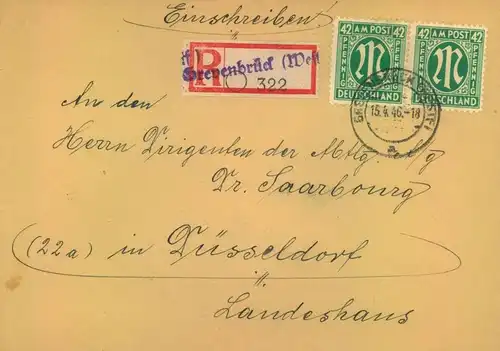 Einschreiben!
42 AM POST 42
PFENNIG PFENNIG
M
DEUTSCHLAND
42 AM POST 42
PFENNIG PFENNIG
M
DEUTSCHLAND
R
Grevenbrück (West
322
15.4.46.-18
a
An den
Herrn Dirigenten der Abtlg. Ig
Dr. Saarbourg
(22a) in Düsseldorf
Landeshaus